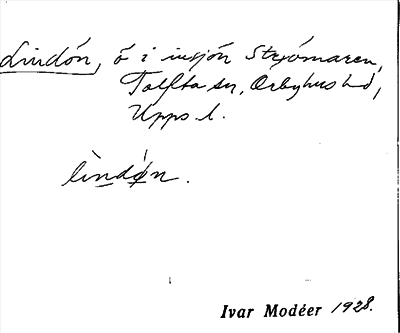 Lindön, ö i insjön Strömaren,
Tolfta sn, Örbyhus hd,
Upps. l.
lìndǿn.
Ivar Modéer 1928.